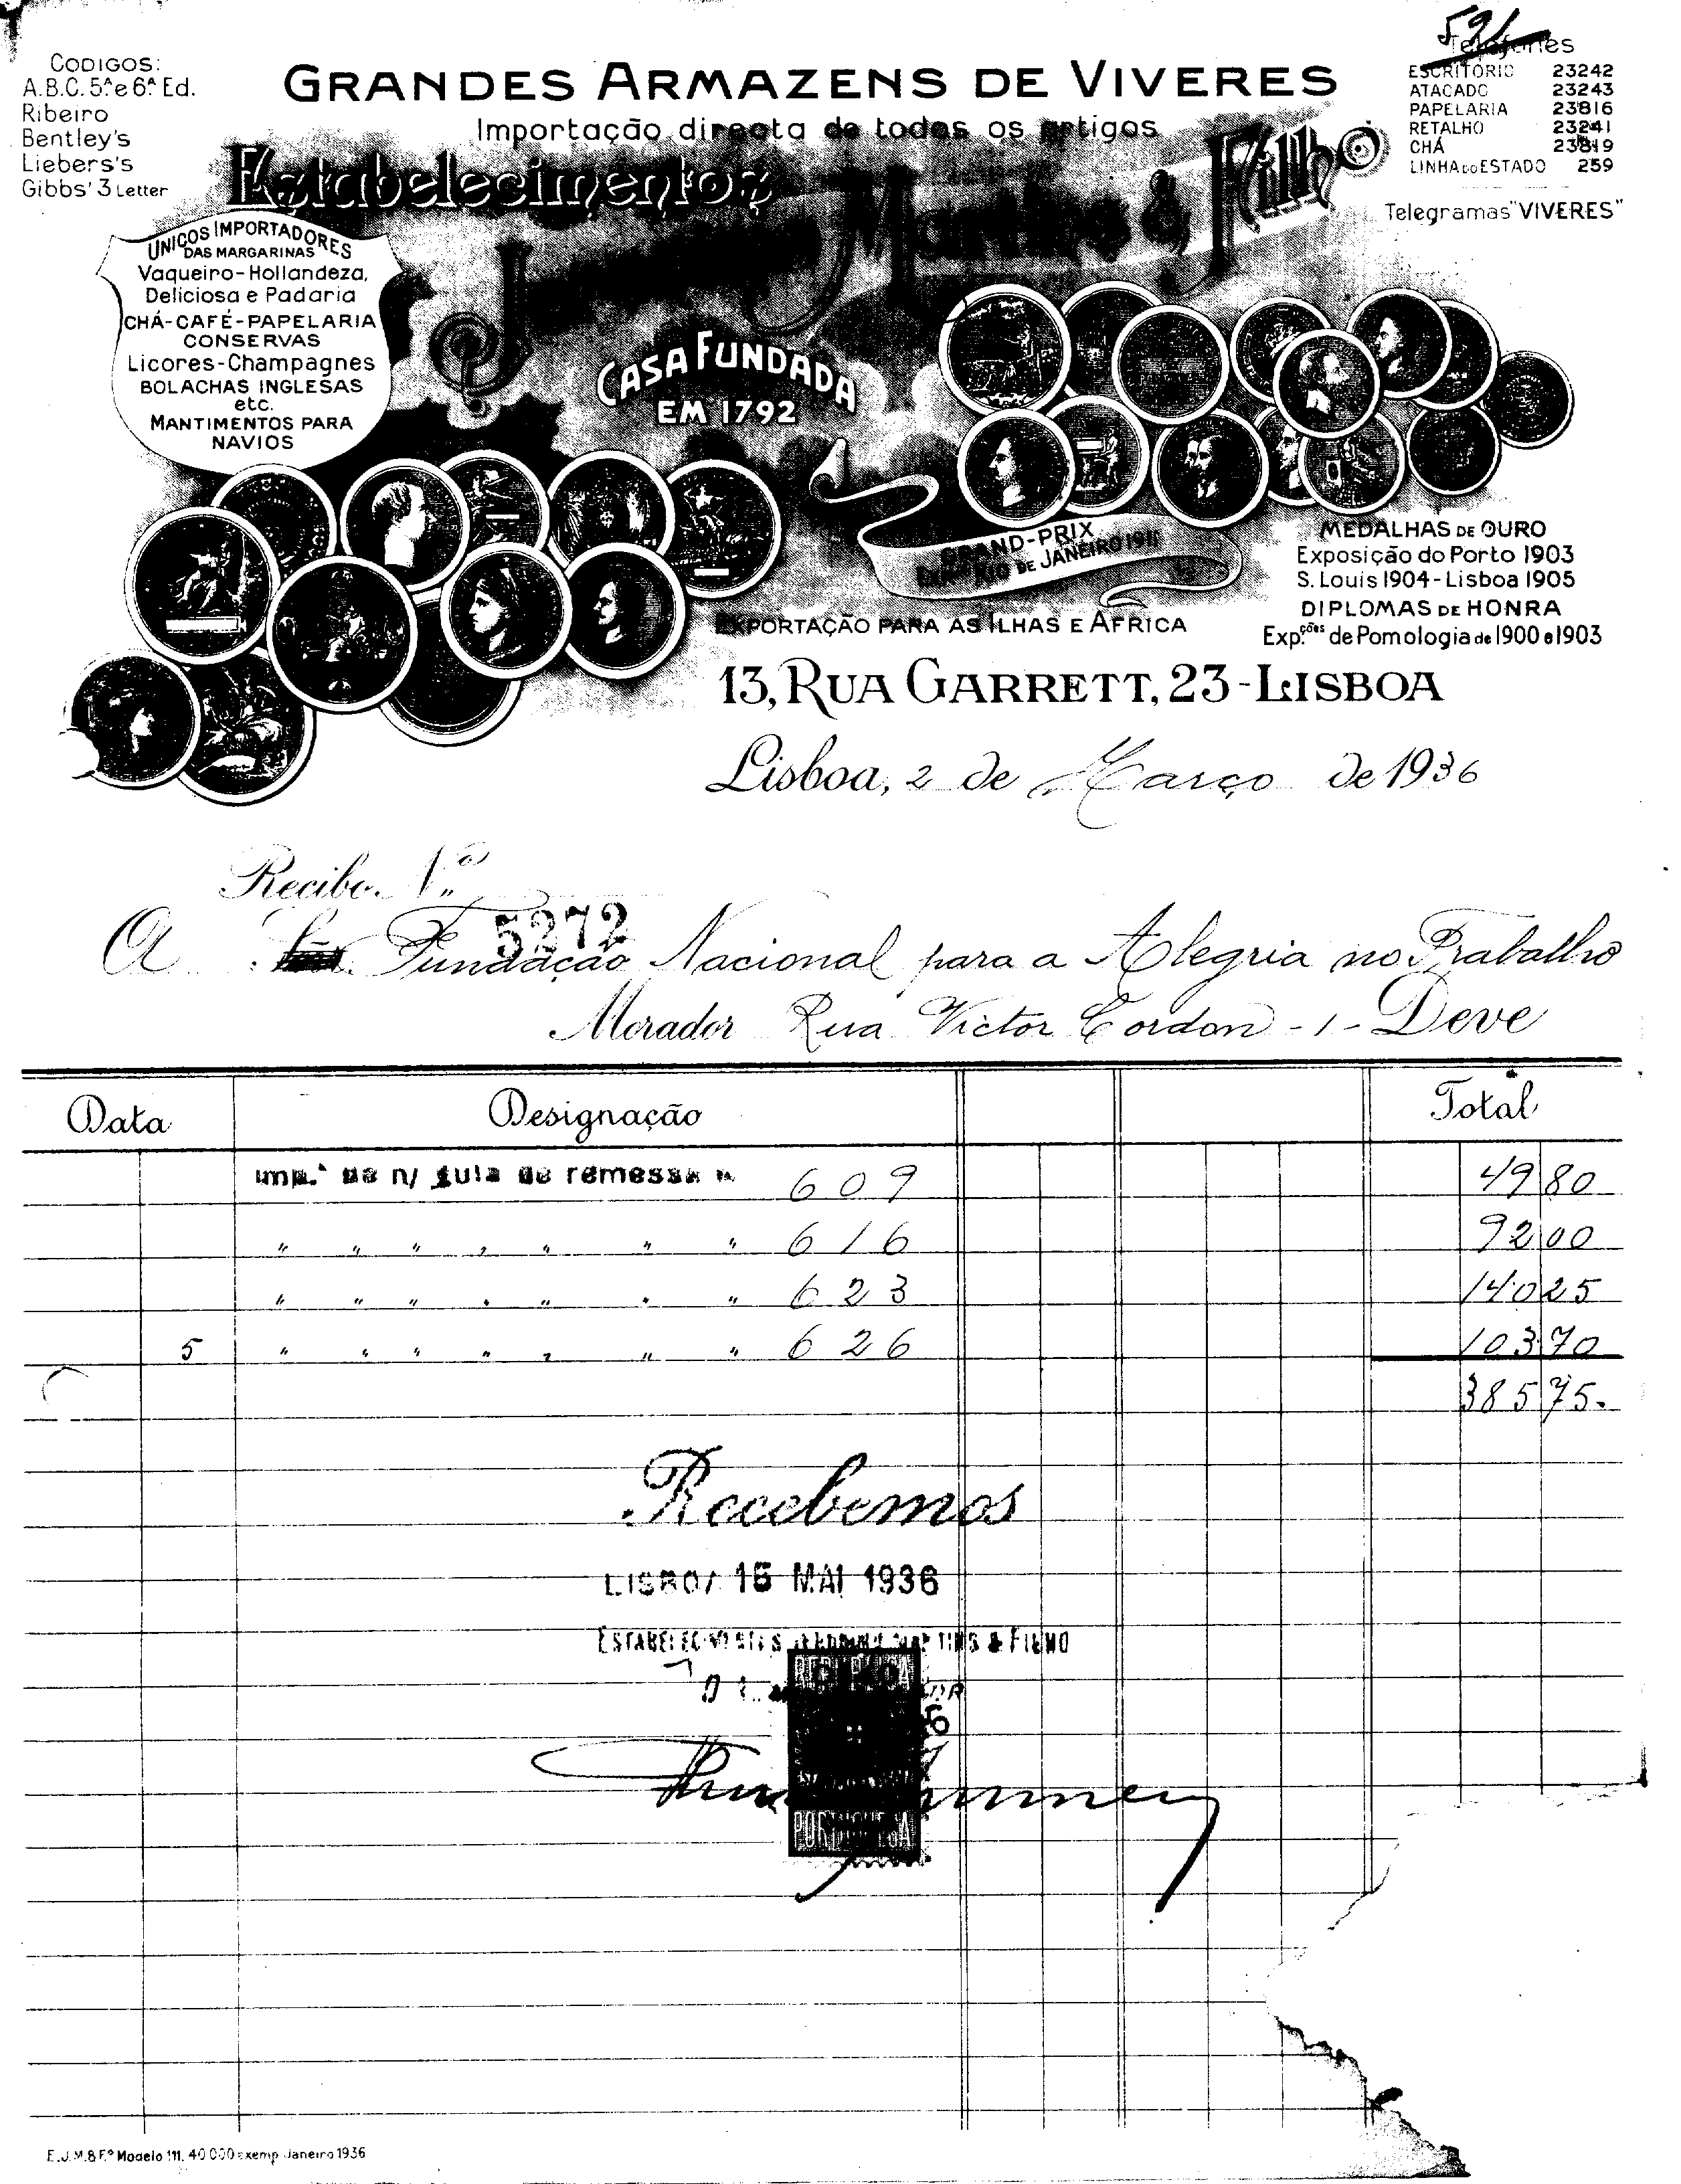 591
CODIGOS:
A.B.C. 5ª e 6ª Ed.
Ribeiro
Bentley's
Liebers's
Gibbs' 3 Letter
GRANDES ARMAZENS DE VIVERES
Importação directa de todos os artigos
Estabelecimentos
Jeronymo Martins & Filho
Telefones
ESCRITÓRIO 23242
ATACADO 23243
PAPELARIA 23816
RETALHO 23241
CHÁ 23819
LINHA DO ESTADO 259
Telegramas "VIVERES"
UNICOS IMPORTADORES
DAS MARGARINAS
Vaqueiro-Hollandeza,
Deliciosa e Padaria
CHÁ-CAFÉ-PAPELARIA
CONSERVAS
Licores-Champagnes
BOLACHAS INGLESAS
etc.
MANTIMENTOS PARA
NAVIOS
CASA FUNDADA
EM 1792
GRAND-PRIX
RIO DE JANEIRO 1911
MEDALHAS DE OURO
Exposição do Porto 1903
S. Louis 1904-Lisboa 1905
DIPLOMAS DE HONRA
Exp.ções de Pomologia de 1900 e 1903
EXPORTAÇÃO PARA AS ILHAS E AFRICA
13, RUA GARRETT, 23-LISBOA
Lisboa, 2 de Março de 1936
Recibo Nº
5272
A Fundação Nacional para a Alegria no Trabalho
Morador Rua Victor Cordon - 1 - Deve
Data Designação Total
Imp.ª da n/ guia de remessa n. 609 49 80
" " " " " " " 616 92 00
" " " " " " " 623 140 25
5 " " " " " " " 626 103 70
385 75.
Recebemos
LISBOA 15 MAI 1936
ESTABELECIMENTOS JERONYMO MARTINS & FILHO
PORTUGUESA
E.J.M.& F.º Modelo 111. 40 000 exemp. Janeiro 1936